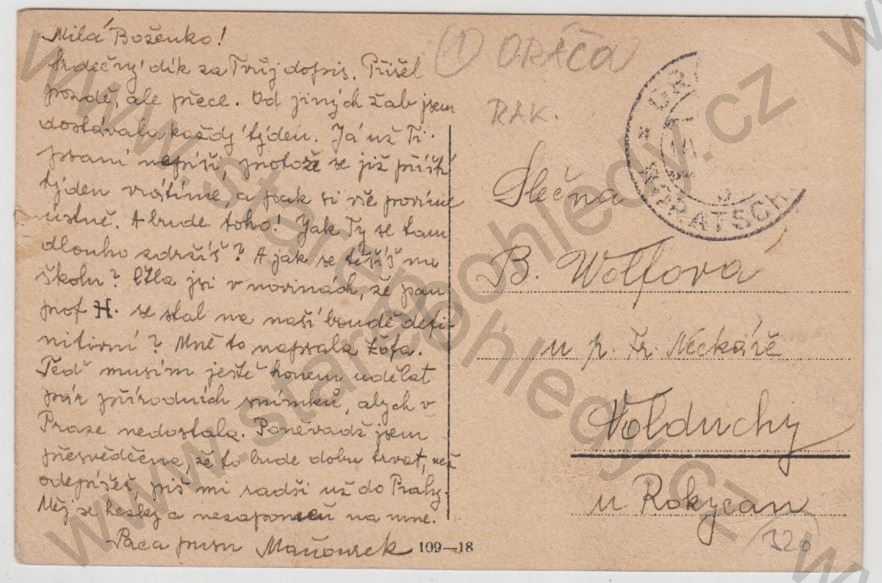 Milá Boženko!
Srdečný dík za Tvůj dopis. Přišel
pozdě, ale přece. Od jiných žab jsem
dostávala každý týden. Já už Ti
psaní nepíši, protože se již příští
týden vrátíme, a pak si vše povíme
ústně. A bude toho! Jak Ty se tam
dlouho zdržíš? A jak se těšíš na
školu? Četla jsi v novinách, že pan
prof H. se stal na naší boudě defi-
nitivní? Mně to napsala Žofa.
Teď musím ještě honem udělat
pár přírodních snímků, abych v
Praze nedostala. Poněvadž jsem
přesvědčena, že to bude dobu trvat, než
odepíšeš, piš mi radši už do Prahy.
Měj se hezky a nezapomeň na mne.
Paca pusu
109—18
① ORÁČA
RAK.
ORA
ORATSCH
Slečna
B. Wolfová
u p. Fr. Neckáře
Volduchy
u Rokycan
320
www.starepohledy.cz
www.starepohledy.cz